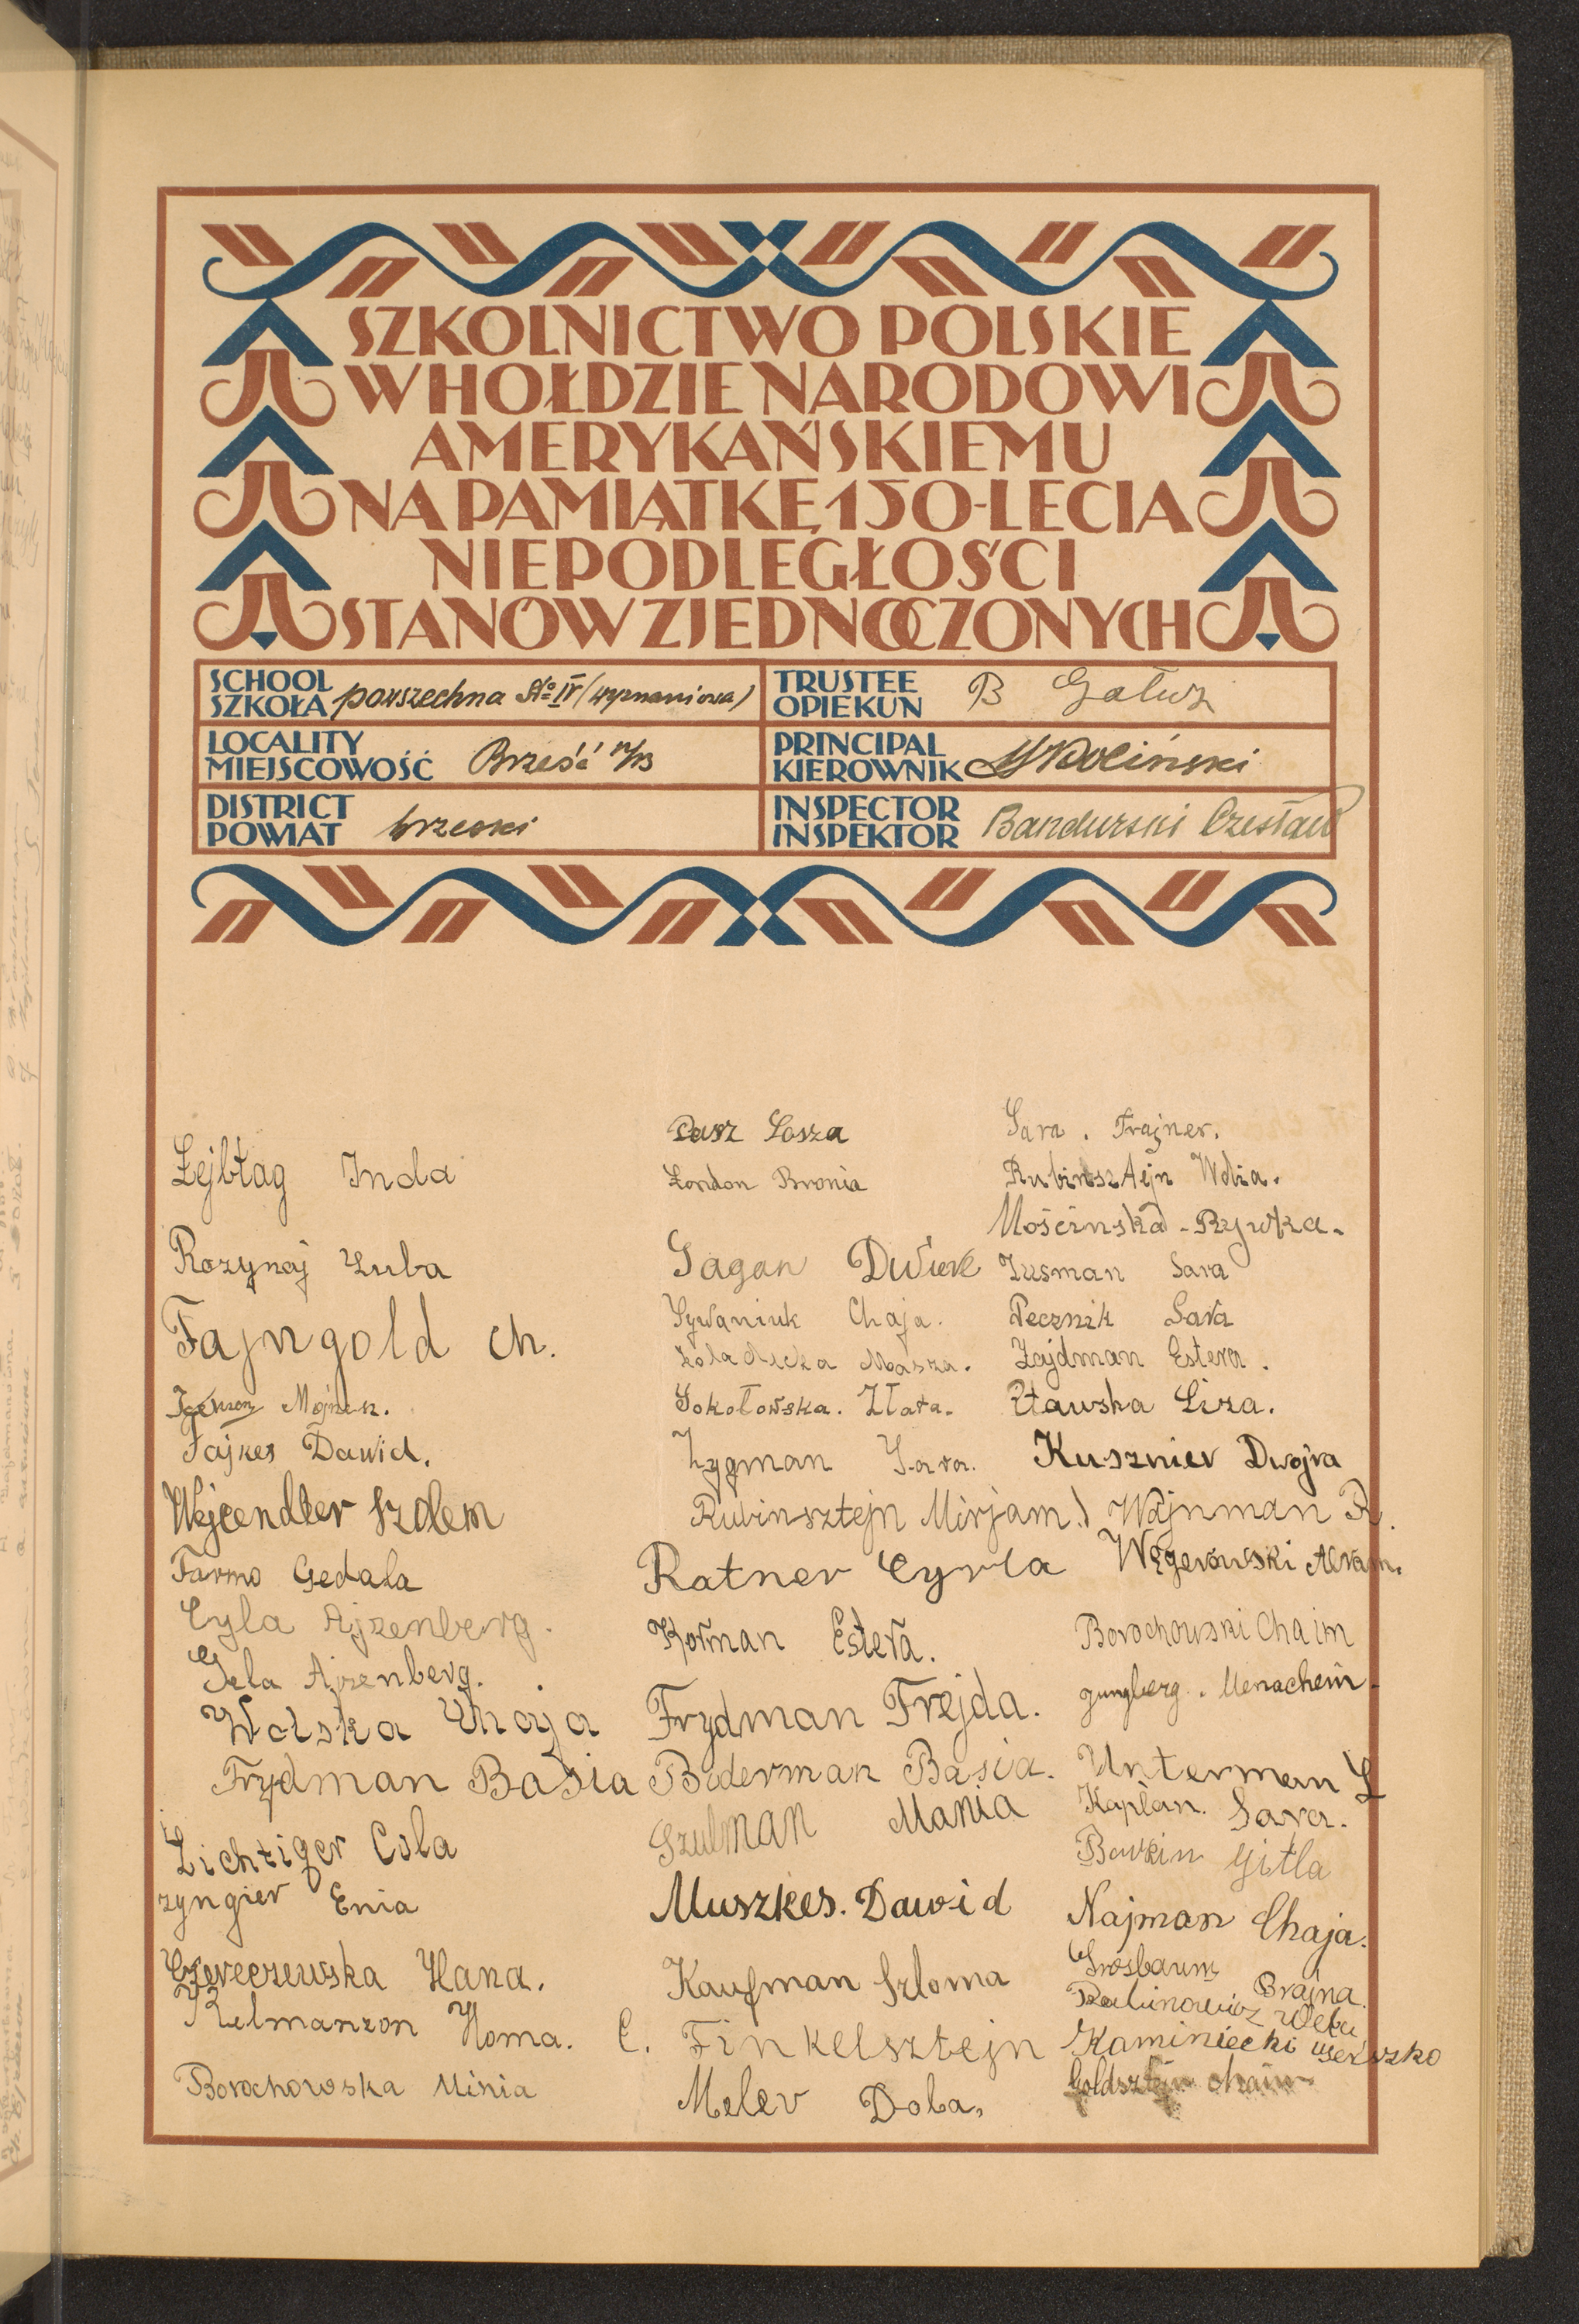 SZKOLNICTWO POLSKIE
W HOŁDZIE NARODOWI
AMERYKAŃSKIEMU
NA PAMIĄTKĘ 150-LECIA
NIEPODLEGŁOŚCI
STANÓW ZJEDNOCZONYCH
SCHOOL
SZKOŁA powszechna № IV (wyznaniowa)
TRUSTEE
OPIEKUN B Gałusz
LOCALITY
MIEJSCOWOŚĆ Brześć n/B
PRINCIPAL
KIEROWNIK
DISTRICT
POWIAT brzeski
INSPECTOR
INSPEKTOR Bandurski Czesław
Lejbtag Inda
Rozynoj Luba
Fajngold Ch.
Fajkes Dawid.
Wejcendler Szolem
Farmo Gedala
Cyla Ajzenberg.
Gela Ajzenberg.
Wolska Chaja
Frydman Basia
Lichtiger Cola
zyngier Enia
Czereczewska Hana.
Kelmanzon Homa.
Borochowska Minia
Pasz Sosza
London Bronia
Gagan
Sywaniuk Chaja.
Masza.
Sokołowska. Złata.
Zygman Sara.
Rubinsztejn Mirjam.
Ratner Cyrla
Korman Estera.
Frydman Frejda.
Bederman Basia.
Szulman Mania
Muszkes. Dawid
Kaufman Szloma
C. Finkelsztejn
Meler Doba.
Sara. Trajner.
Rubinsztejn
Mościnska - Rywka.
Zusman Sara
Pecznik Sara
Zajdman Estera.
Pławska Liza.
Kusznier Dwojra
Wajnman R.
Węgerowski Abram.
Borochowski Chaim
Jungberg. Menachem.
Unterman L
Kaplan. Sara.
Gitla
Najman Chaja.
Grosbaum Brajna.
Rabinowicz Weba
Kaminiecki Herszko
Goldsztejn chaim